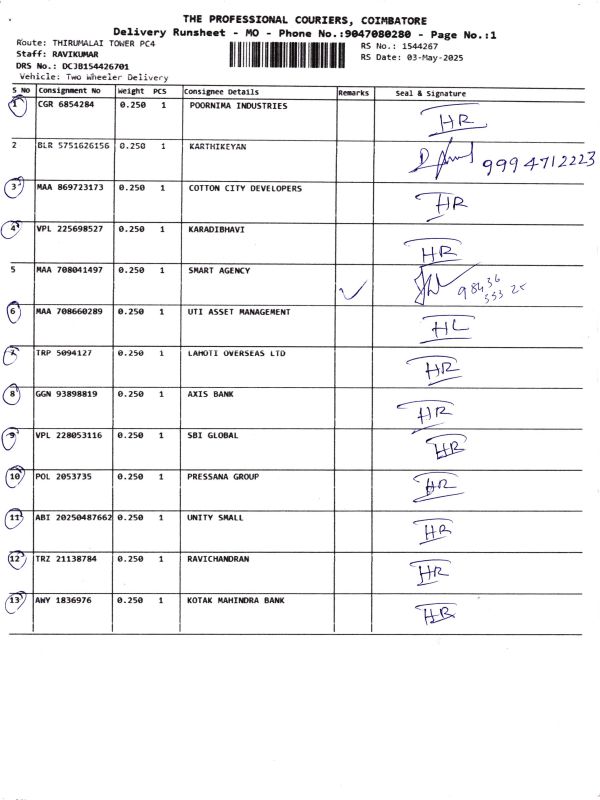 THE PROFESSIONAL COURIERS, COIMBATORE
Delivery Runsheet - MO - Phone No.:9047080280 - Page No.:1
Route: THIRUMALAI TOWER PC4
Staff: RAVIKUMAR
DRS No.: DCJB154426701
Vehicle: Two Wheeler Delivery
RS No.: 1544267
RS Date: 03-May-2025
S No Consignment No Weight PCS Consignee Details Remarks Seal & Signature
1 CGR 6854284 0.250 1 POORNIMA INDUSTRIES HR
2 BLR 5751626156 0.250 1 KARTHIKEYAN 9994712223
3 MAA 869723173 0.250 1 COTTON CITY DEVELOPERS HR
4 VPL 225698527 0.250 1 KARADIBHAVI HR
5 MAA 708041497 0.250 1 SMART AGENCY
6 MAA 708660289 0.250 1 UTI ASSET MANAGEMENT HL
7 TRP 5094127 0.250 1 LAHOTI OVERSEAS LTD HR
8 GGN 93898819 0.250 1 AXIS BANK HR
9 VPL 228053116 0.250 1 SBI GLOBAL HR
10 POL 2053735 0.250 1 PRESSANA GROUP HR
11 ABI 20250487662 0.250 1 UNITY SMALL HR
12 TRZ 21138784 0.250 1 RAVICHANDRAN HR
13 AWY 1836976 0.250 1 KOTAK MAHINDRA BANK HR